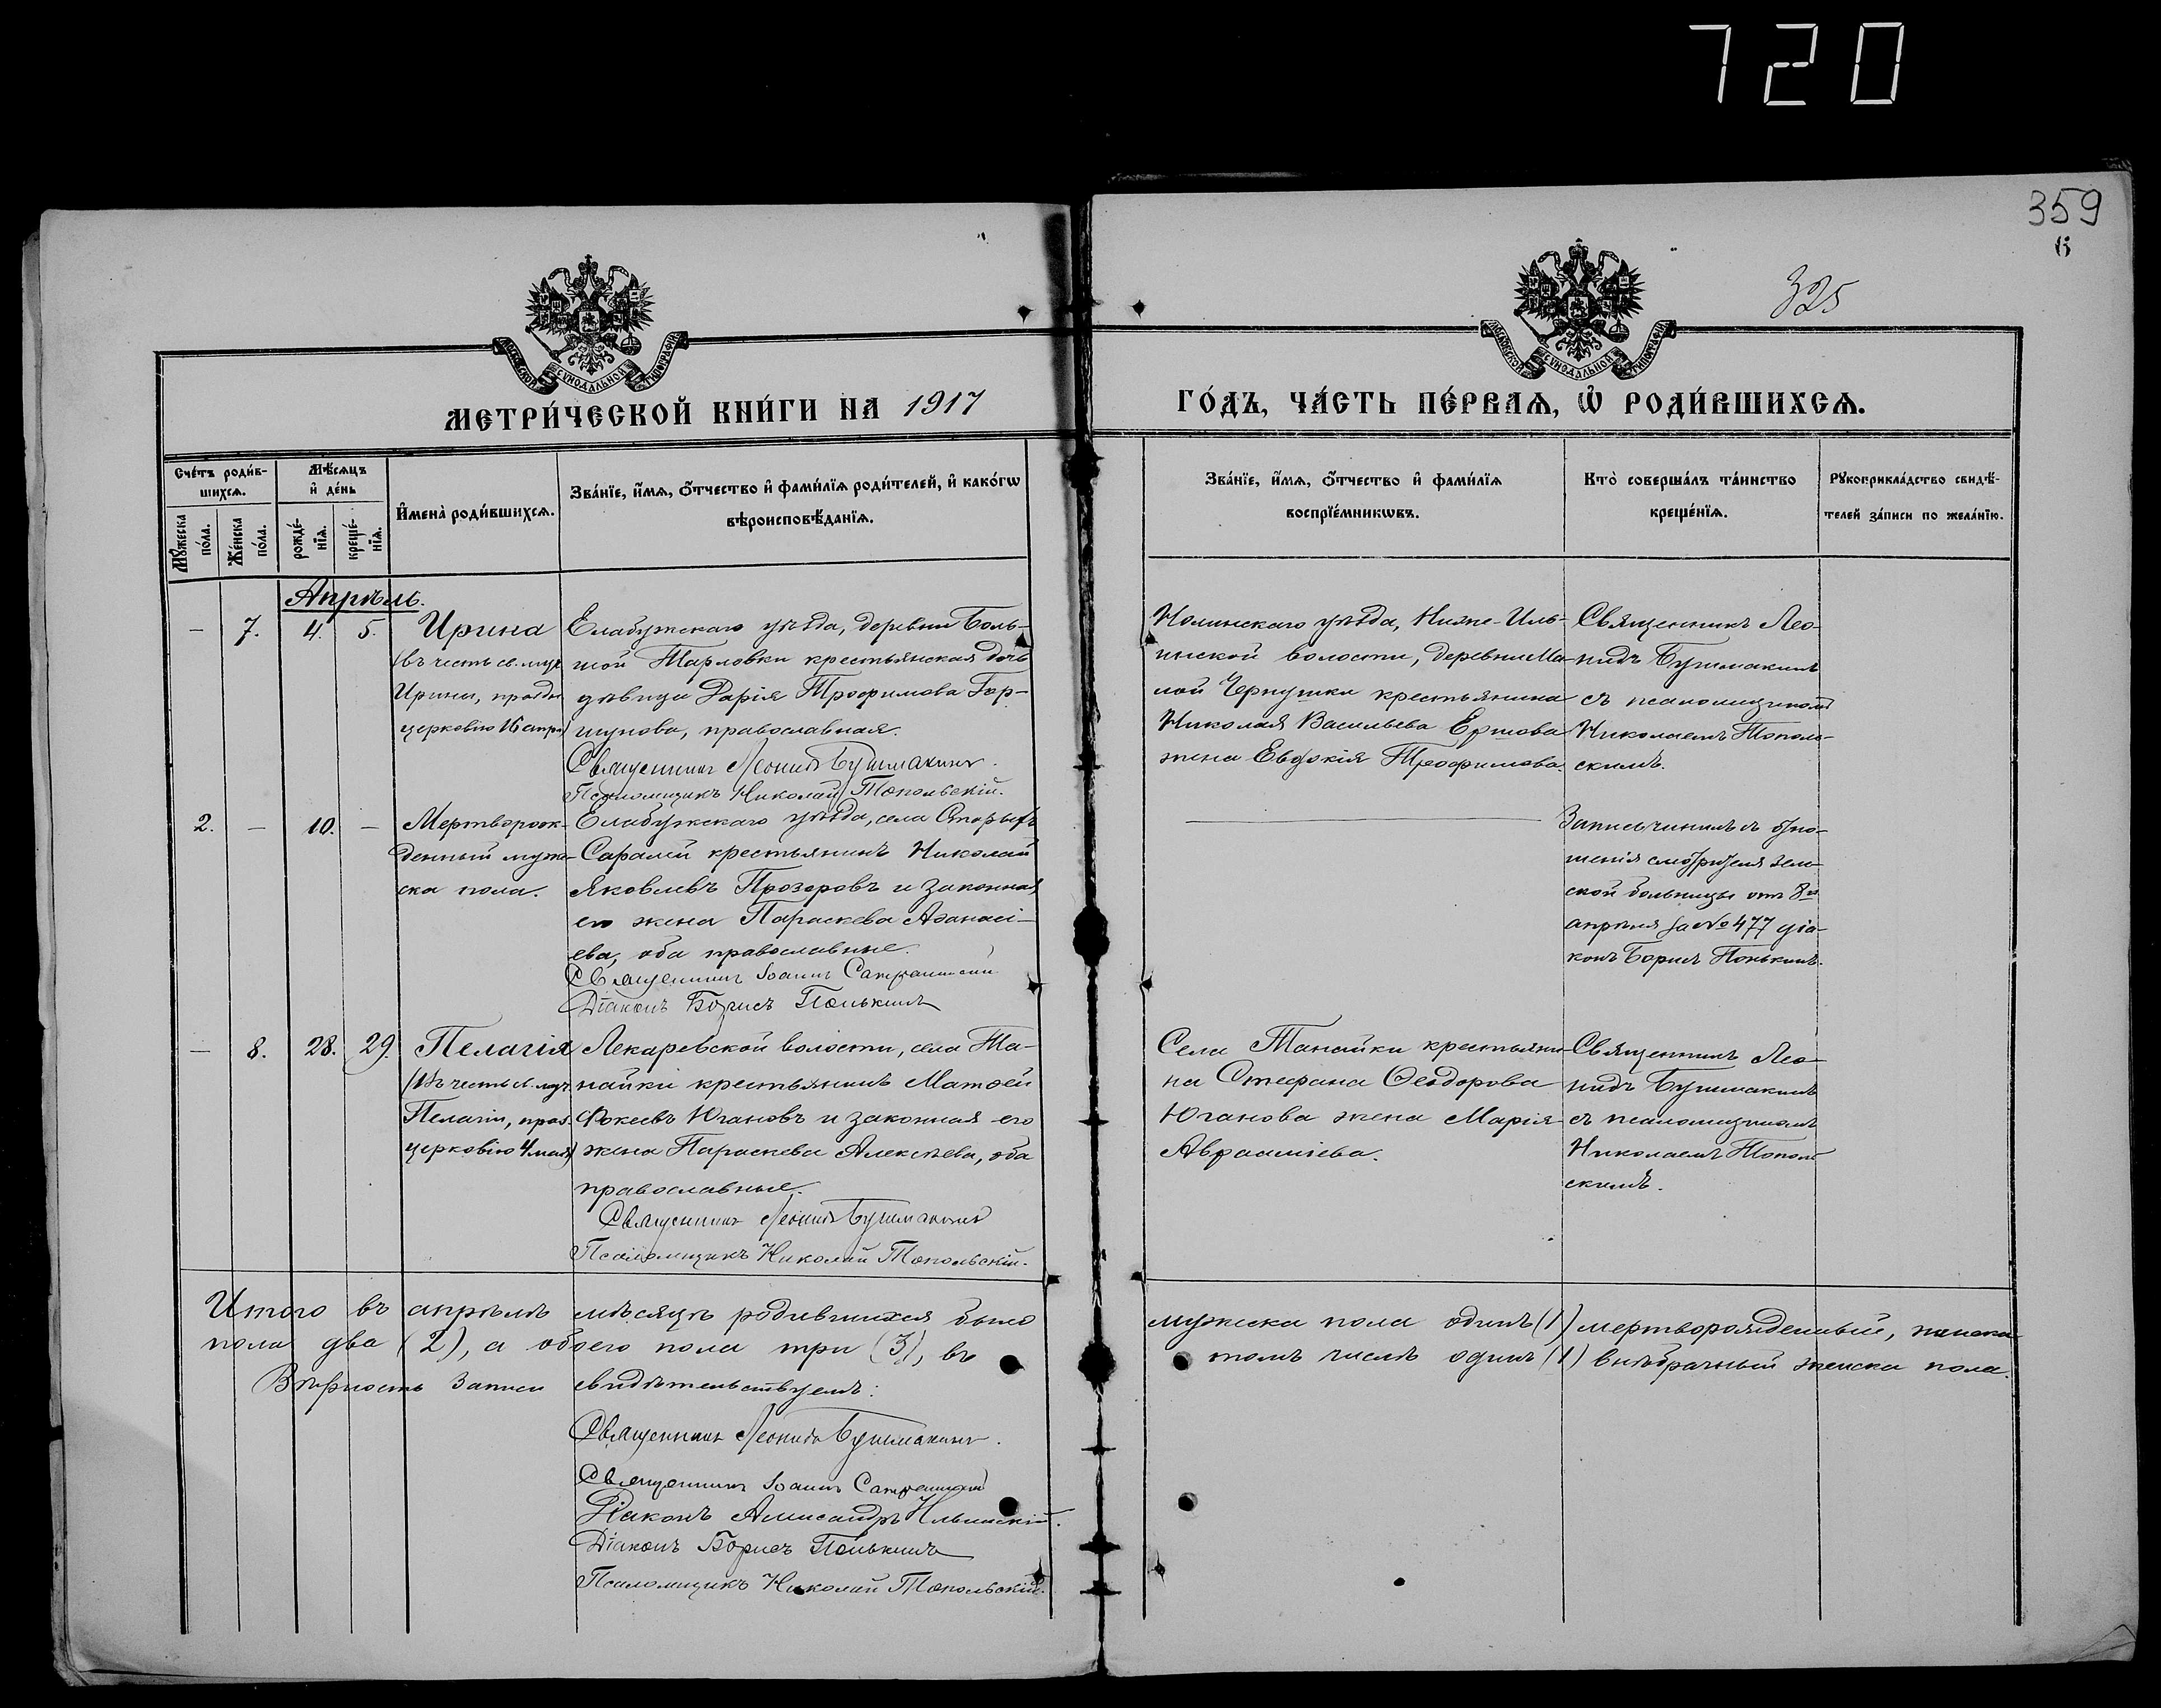 720
359
325
МОСКОВСКОЙ СѴНОДАЛЬНОЙ ТИПОГРАФІИ
МОСКОВСКОЙ СѴНОДАЛЬНОЙ ТИПОГРАФІИ
МЕТРИ́ЧЕСКОЙ КНИ́ГИ НА 1917
ГО́ДЪ, ЧА́СТЬ ПЕ́РВАѦ, Ѡ҆ РОДИ́ВШИХСѦ.
Сче́тъ роди́в-
шихсѧ.
Мѣ́сѧцъ
и҆ де́нь
Мꙋ́жеска
по́ла.
Же́нска
по́ла.
рожде́-
нїѧ.
креще́-
нїѧ.
И҆мена̀ роди́вшихсѧ.
Зва́нїе, и҆́мѧ, ѻ҆́тчество и҆ фами́лїѧ роди́телей, и҆ како́гѡ
вѣроисповѣ́данїѧ.
Зва́нїе, и҆́мѧ, ѻ҆́тчество и҆ фами́лїѧ
воспрїе́мникѡвъ.
Кто̀ соверша́лъ та́инство
креще́нїѧ.
Рꙋкоприкла́дство свидѣ́-
телей за́писи по жела́нїю.
Апрѣль.
— 7. 4. 5.
Ирина
(въ честь св. муч.
Ирины, праздн.
церковію 16 апр.)
Елабужскаго уѣзда, деревни Боль-
шой Тарловки крестьянская дочь
дѣвица Дарія Трофимова Гор-
шунова, православная.
Священникъ Леонидъ Бушмакинъ.
Псаломщикъ Николай Топольскій.
Нолинскаго уѣзда, Ниже-Иль-
инской волости, деревни Ма-
лой Чернушки крестьянина
Николая Васильева Ершова
жена Евдокія Трофимова.
Священникъ Лео-
нидъ Бушмакинъ
съ псаломщикомъ
Николаемъ Тополь-
скимъ.
2. — 10. —
Мертворож-
денный муже-
ска пола.
Елабужскаго уѣзда, села Старыхъ
Саралей крестьянинъ Николай
Яковлевъ Прозоровъ и законная
его жена Параскева Аѳанасі-
ева, оба православные.
Священникъ Іоаннъ
Діаконъ Борисъ Понькинъ
Запись чинилъ съ отно-
шенія смотрителя зем-
ской больницы отъ 8го
апрѣля за №477 діа-
конъ Борисъ Понькинъ.
— 8. 28. 29.
Пелагія
(въ честь св. муч.
Пелагіи, праз.
церковію 4 мая)
Лекаревской волости, села Та-
найки крестьянинъ Матѳей
Фокеевъ Югановъ и законная его
жена Параскева Алексѣева, оба
православные.
Священникъ Леонидъ Бушмакинъ
Псаломщикъ Николай Топольскій.
Села Танайки крестьяни-
на Стефана Ѳеодорова
Юганова жена Марія
Авраамiева.
Священникъ Лео-
нидъ Бушмакинъ
съ псаломщикомъ
Николаемъ Тополь-
скимъ.
Итого въ апрѣлѣ мѣсяцѣ родившихся было мужеска пола одинъ (1) мертворожденный, женска
пола два (2), а обоего пола три (3), въ томъ числѣ одинъ (1) внѣбрачный женска пола.
Вѣрность записи свидѣтельствуемъ:
Священникъ Леонидъ Бушмакинъ.
Священникъ Іоаннъ
Діаконъ Александръ Ильинскій.
Діаконъ Борисъ Понькинъ
Псаломщикъ Николай Топольскій.